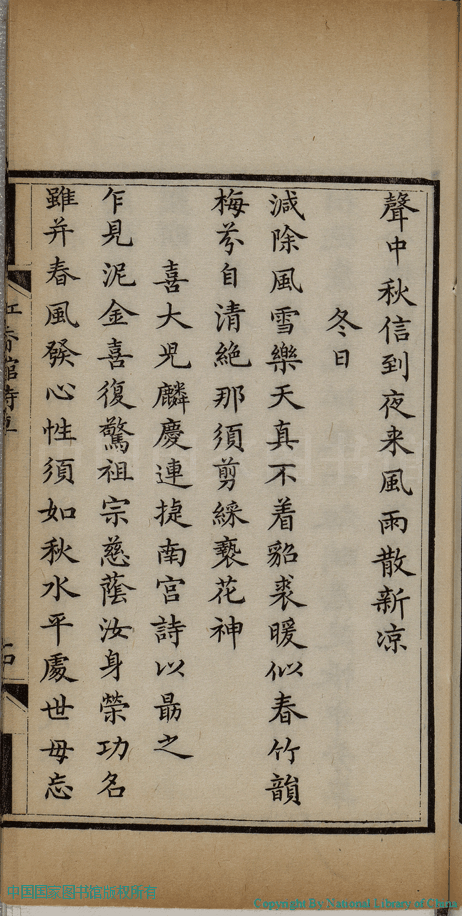 聲中秋信到夜来風雨散新凉
冬日
減除風雪樂天真不着貂裘暖似春竹韻
梅芬自清絶那須剪綵褻花神
喜大児麟慶連捷南宫詩以勗之
乍見泥金喜復驚祖宗慈蔭汝身榮功名
雖并春風發心性須如秋水平處世毋忘
香館詩
中国国家图书馆版权所有
Copyright By National Library of China